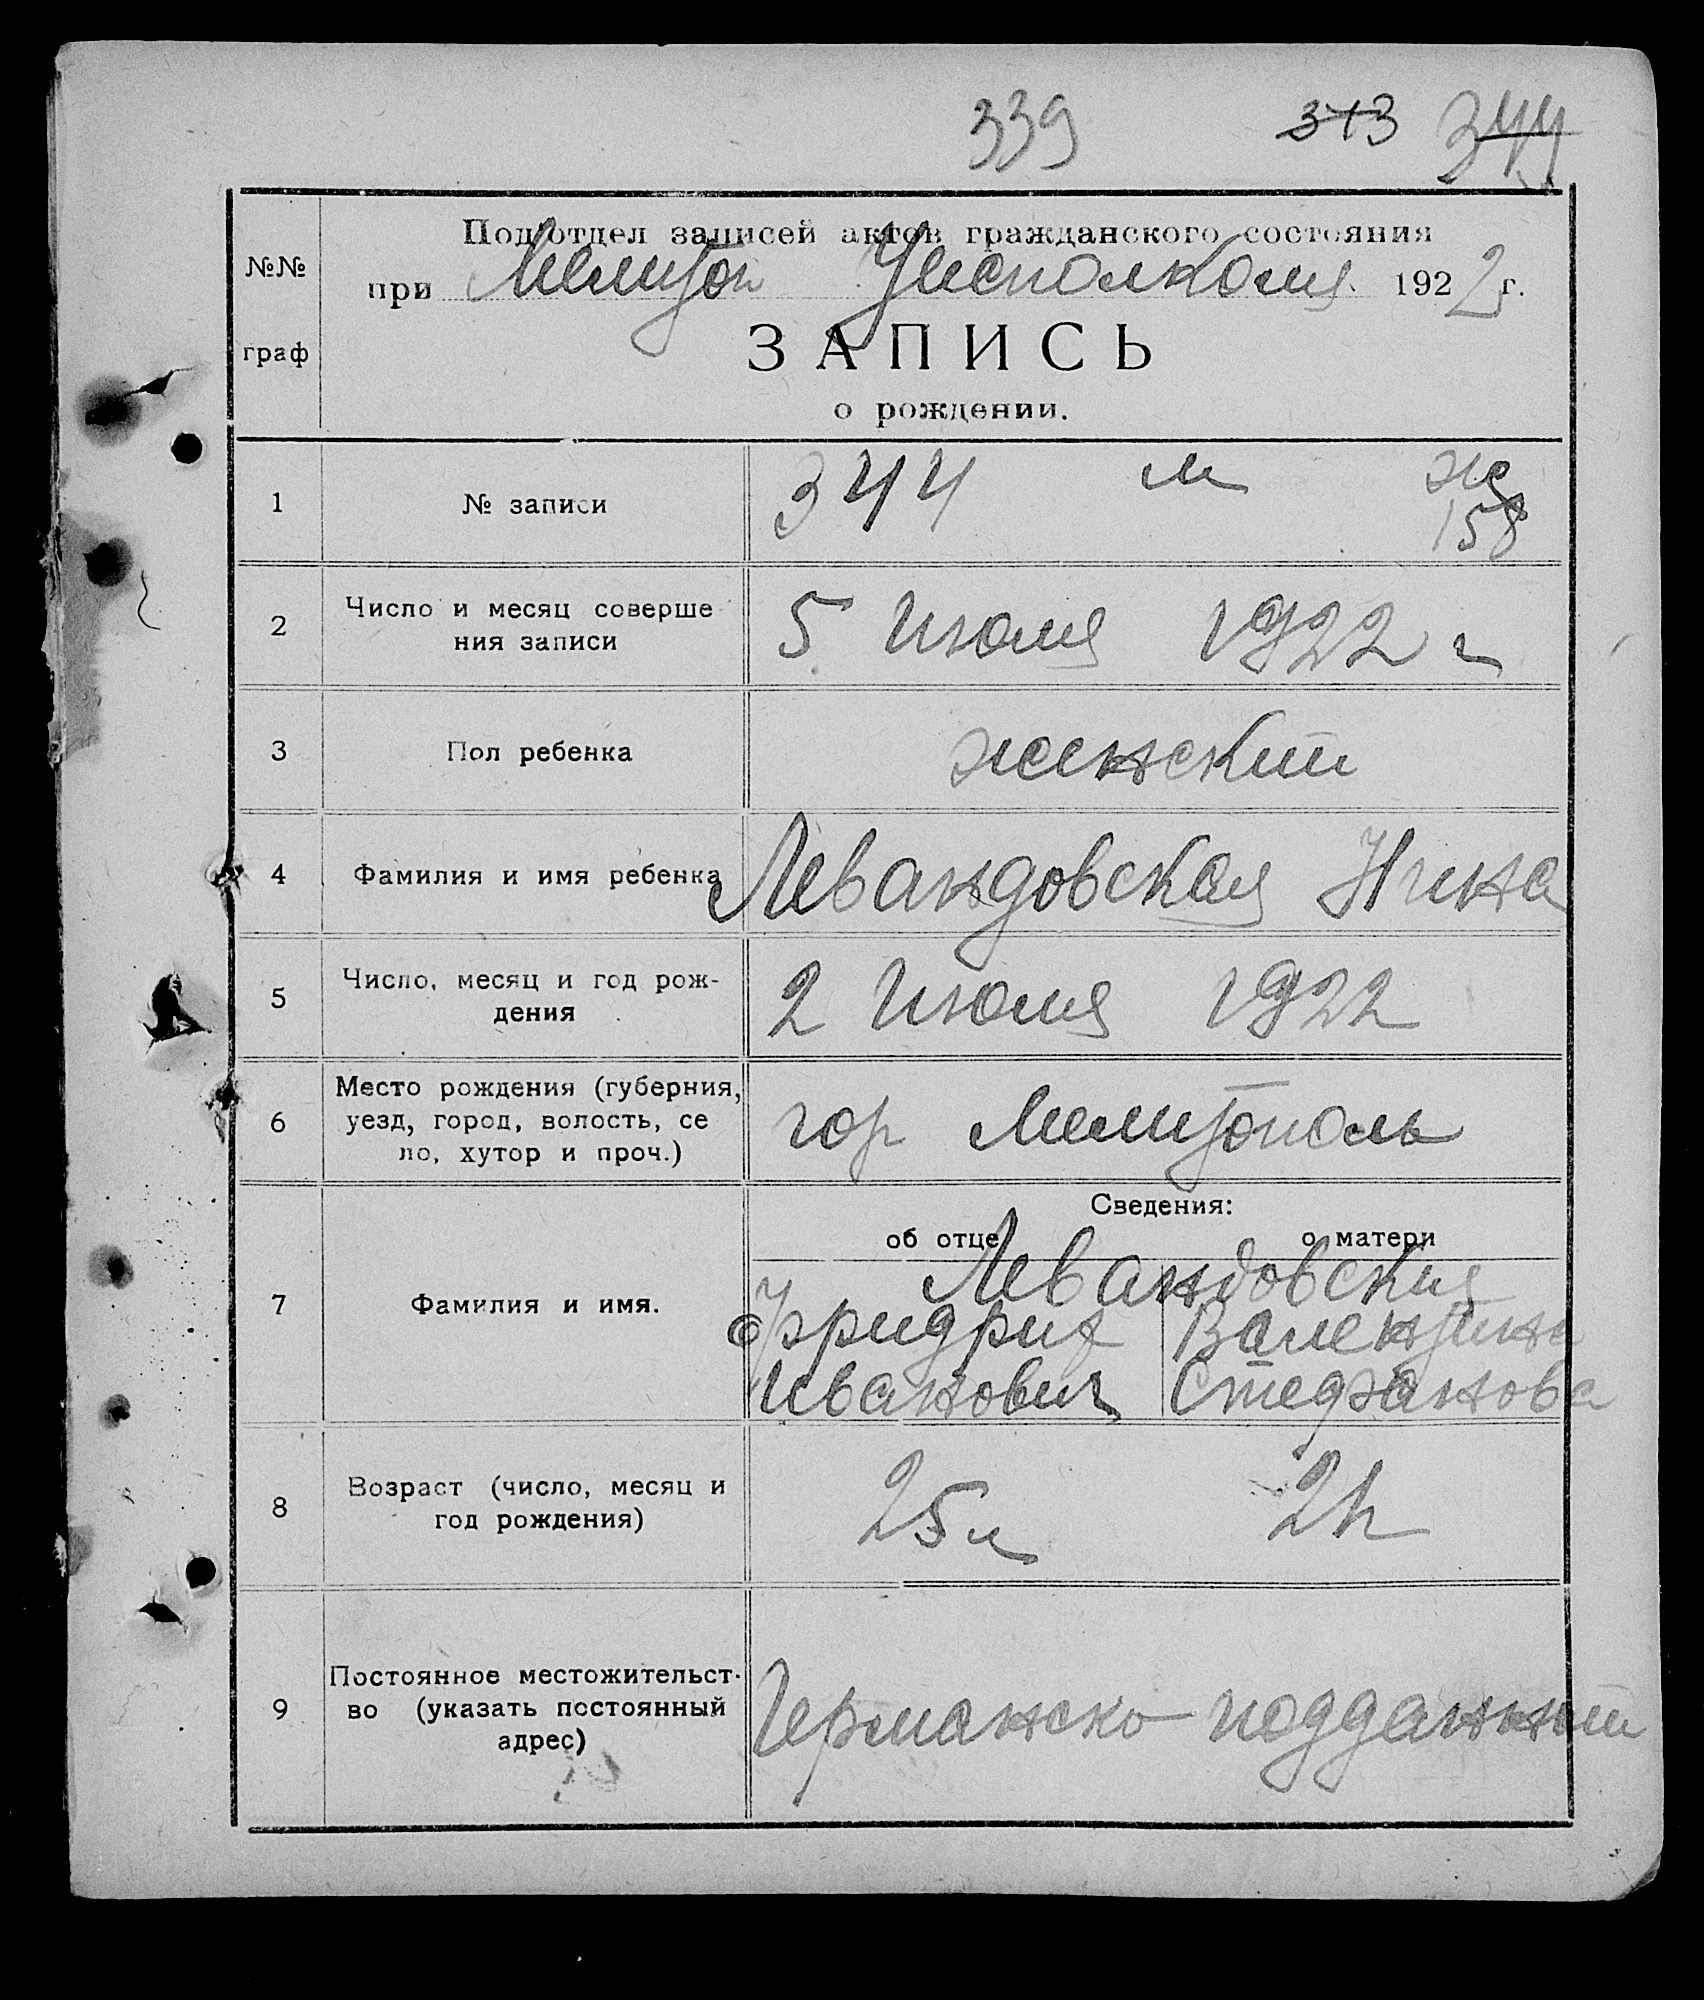 339 313 344
Подотдел записей актов гражданского состояния
№№
при Мелитоп Уисполкома 1922 г.
граф
ЗАПИСЬ
о рождении.
1 № записи 344 м ж
158
2 Число и месяц соверше
ния записи 5 Июля 1922 г
3 Пол ребенка женский
4 Фамилия и имя ребенка Левандовская Нина
5 Число, месяц и год рож-
дения 2 Июля 1922
6 Место рождения (губерния,
уезд, город, волость, се
ло, хутор и проч.) гор Мелитополь
Сведения:
об отце о матери
7 Фамилия и имя. Левандовския
Фридрих Валентина
Иванович Стефанова
8 Возраст (число, месяц и
год рождения) 25 л 21
9 Постоянное местожительст-
во (указать постоянный
адрес) Германско подданный